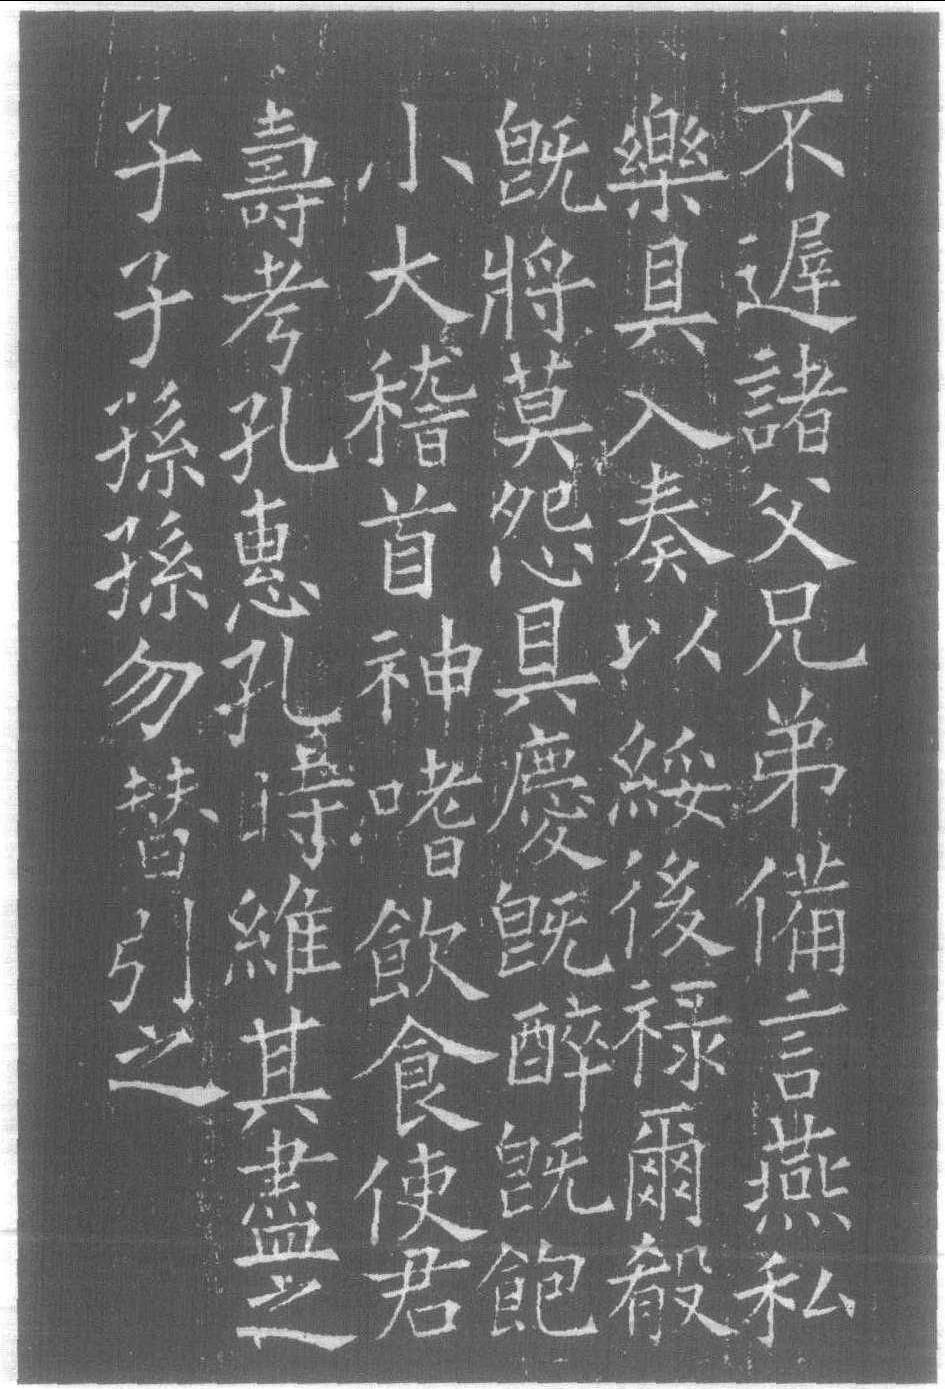 不遲諸父兄弟備言燕私
樂具入奏以綏後祿爾殽
既將莫怨具慶既醉既飽
小大稽首神嗜飲食使君
壽考孔惠孔時維其盡之
子子孫孫勿替引之